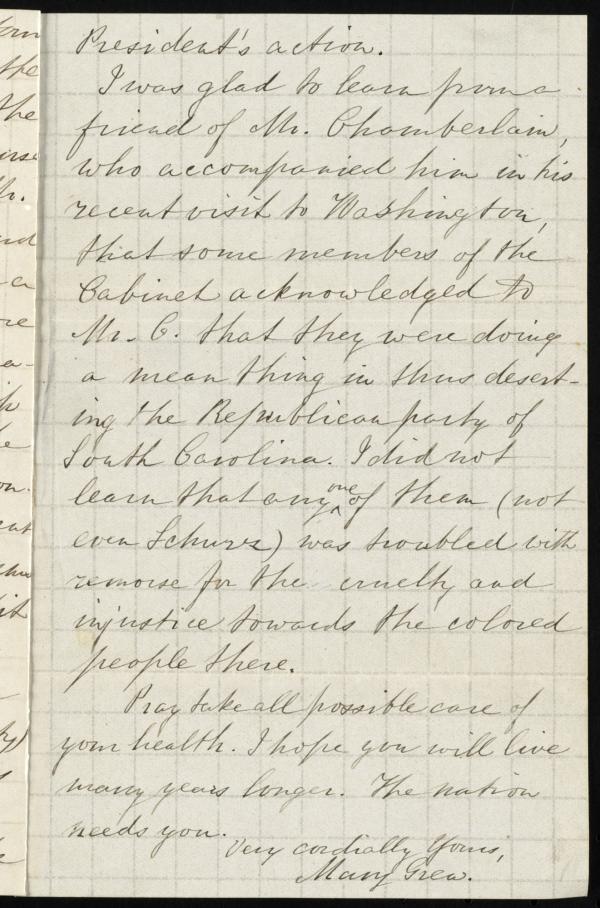 President's action.
I was glad to learn from a
friend of Mr. Chamberlain,
who accompanied him in his
recent visit to Washington,
that some members of the
Cabinet acknowledged to
Mr. C. that they were doing
a mean thing in thus desert-
ing the Republican party of
South Carolina. I did not
learn that any one of them (not
even Schurz) was troubled with
remorse for the cruelty and
injustice towards the colored
people there.
Pray take all possible care of
your health. I hope you will live
many years longer. The nation
needs you.
Very cordially Yours,
Mary Grew.